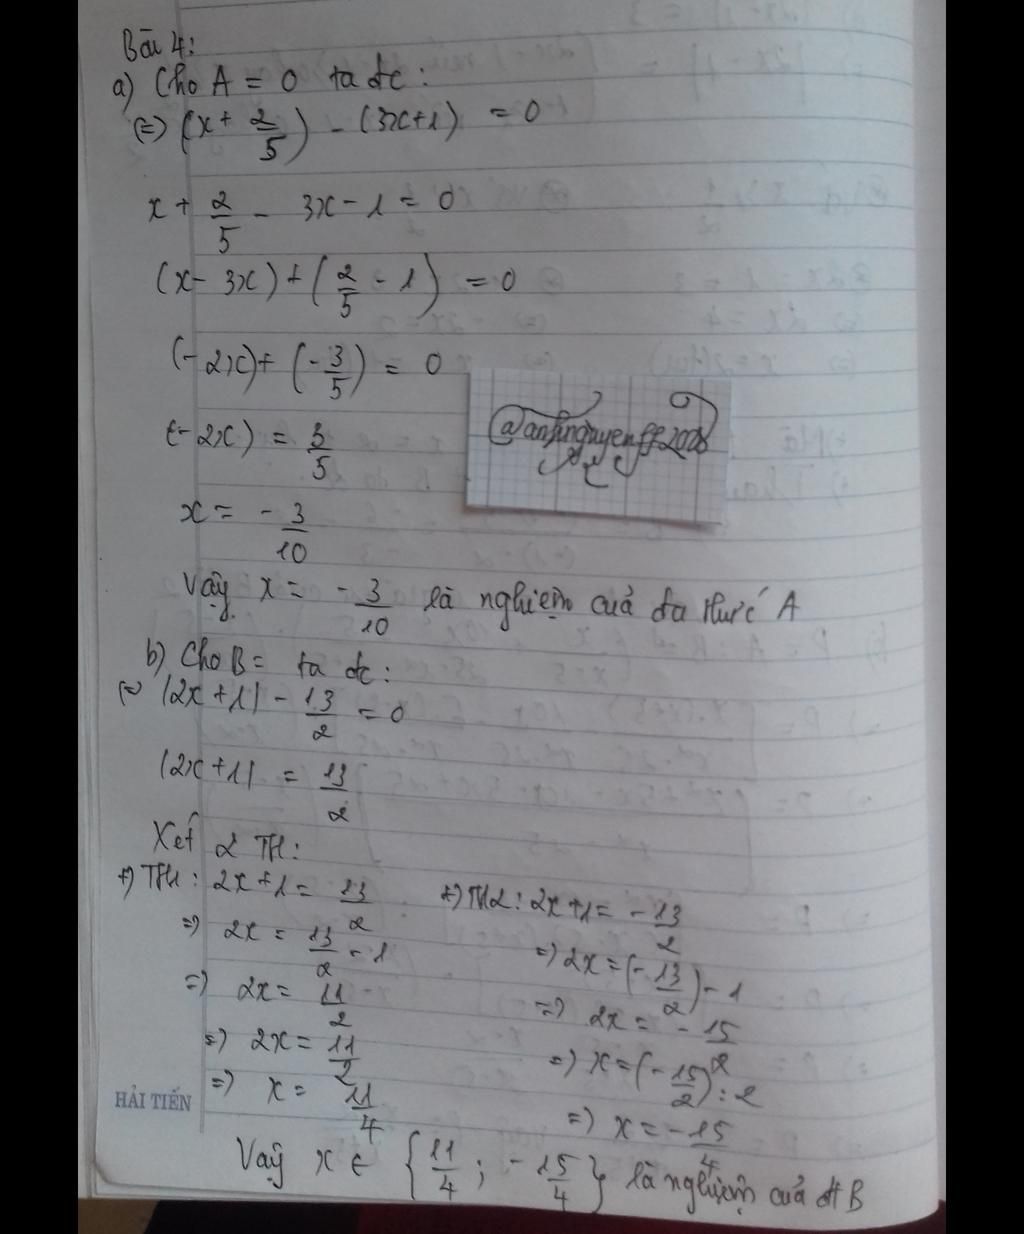 Bài 4:
a) Cho A = 0 ta đc:
(=) (x + 2/5) - (3x+1) = 0
x + 2/5 - 3x - 1 = 0
(x - 3x) + (2/5 - 1) = 0
(-2x) + (-3/5) = 0
(-2x) = 3/5
@anhnguyenff2008
x = -3/10
Vậy x = -3/10 là nghiệm của đa thức A
b) Cho B = ta đc:
(=) |2x + 1| - 13/2 = 0
|2x + 1| = 13/2
Xét 2 TH:
+) TH1: 2x + 1 = 13/2
=) 2x = 13/2 - 1
=) 2x = 11/2
=) 2x = 11/2
=) x = 11/4
+) TH2: 2x + 1 = -13/2
=) 2x = (-13/2) - 1
=) 2x = -15/2
=) x = (-15/2) : 2
=) x = -15/4
HẢI TIẾN
Vậy x ∈ {11/4; -15/4} là nghiệm của đt B